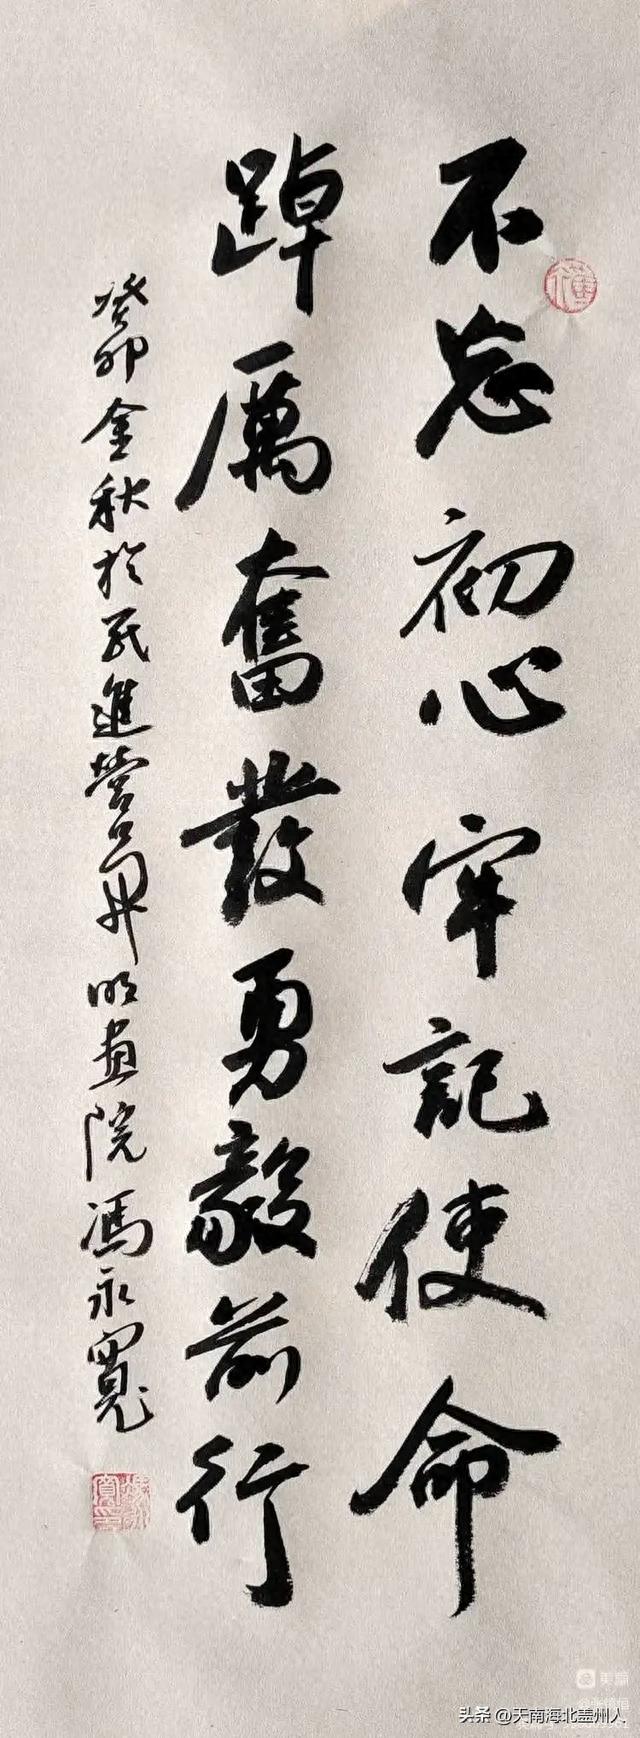 不忘初心牢記使命
踔厲奮發勇毅前行
癸卯金秋於民進營口開明畫院馮永寬
美篇
头条 @天南海北盖州人